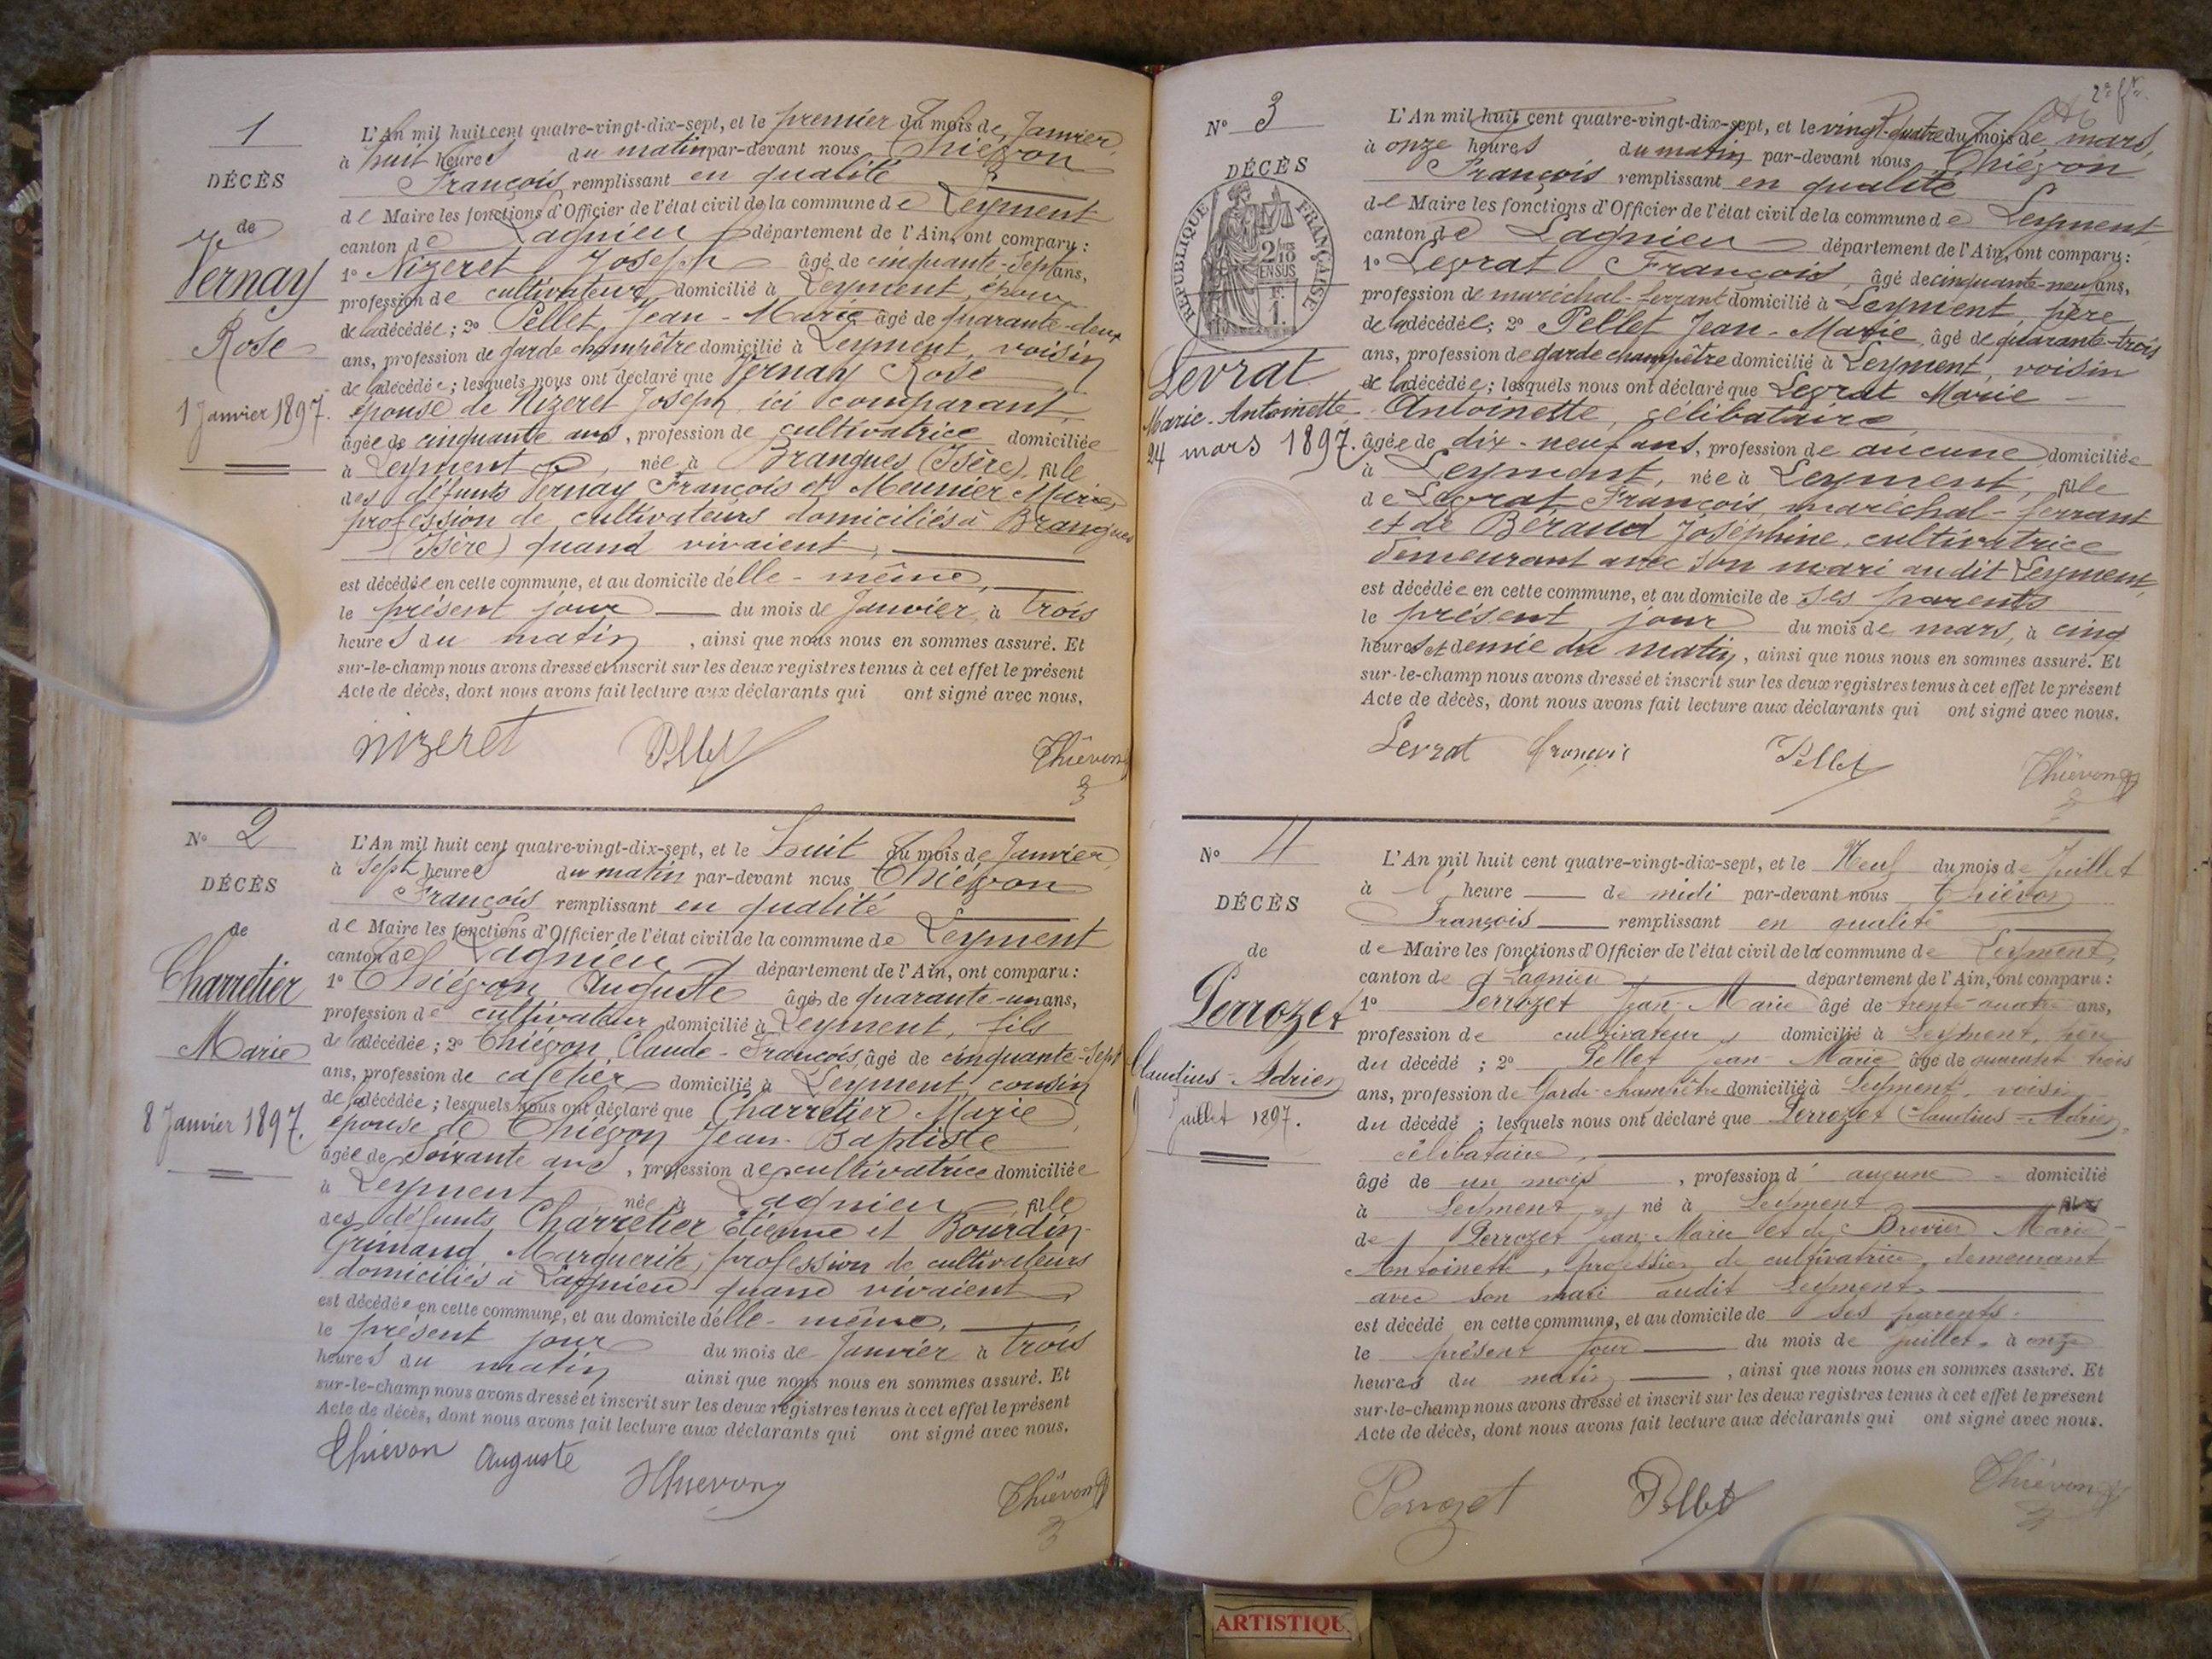 1
DÉCÈS
de
Vernay
Rose
1 Janvier 1897.
L'An mil huit cent quatre-vingt-dix-sept, et le premier du mois de Janvier,
à huit heures du matin par-devant nous Thiévon
François remplissant en qualité
de Maire les fonctions d'Officier de l'état civil de la commune de Leyment
canton de Lagnieu département de l'Ain, ont comparu :
1° Nizeret Joseph âgé de cinquante-sept ans,
profession de cultivateur, domicilié à Leyment, époux
de la décédée ; 2° Pellet, Jean-Marie âgé de quarante-deux
ans, profession de garde champêtre domicilié à Leyment, voisin
de la décédée ; lesquels nous ont déclaré que Vernay Rose
épouse de Nizeret Joseph, ici comparant,
âgée de cinquante ans, profession de cultivatrice domiciliée
à Leyment, née à Brangues (Isère), fille
des défunts Vernay François et Meunier Marie,
profession de cultivateurs domiciliés à Brangues
(Isère) quand vivaient,
est décédée en cette commune, et au domicile d'elle-même,
le présent jour du mois de Janvier, à trois
heures du matin, ainsi que nous nous en sommes assuré. Et
sur-le-champ nous avons dressé et inscrit sur les deux registres tenus à cet effet le présent
Acte de décès, dont nous avons fait lecture aux déclarants qui ont signé avec nous.
nizeret Pellet Thiévon
N° 2
DÉCÈS
de
Charretier
Marie
8 Janvier 1897.
L'An mil huit cent quatre-vingt-dix-sept, et le huit du mois de Janvier,
à sept heures du matin par-devant nous Thiévon
François remplissant en qualité
de Maire les fonctions d'Officier de l'état civil de la commune de Leyment
canton de Lagnieu département de l'Ain, ont comparu :
1° Thiévon Auguste âgé de quarante-un ans,
profession de cultivateur, domicilié à Leyment, fils
de la décédée ; 2° Thiévon, Claude-François, âgé de cinquante-sept
ans, profession de cafetier domicilié à Leyment, cousin
de la décédée ; lesquels nous ont déclaré que Charretier Marie,
épouse de Thiévon Jean-Baptiste
âgée de soixante ans, profession de cultivatrice domiciliée
à Leyment née à Lagnieu fille
des défunts Charretier Étienne et Bourdin-
Grimaud, Marguerite, profession de cultivateurs
domiciliés à Lagnieu quand vivaient
est décédée en cette commune, et au domicile d'elle-même,
le présent jour du mois de Janvier à trois
heures du matin ainsi que nous nous en sommes assuré. Et
sur-le-champ nous avons dressé et inscrit sur les deux registres tenus à cet effet le présent
Acte de décès, dont nous avons fait lecture aux déclarants qui ont signé avec nous.
Thiévon Auguste Thievon Thiévon
N° 3
DÉCÈS
RÉPUBLIQUE FRANÇAISE
2/10 EN SUS
F. 1.
Levrat
Marie-Antoinette
24 mars 1897.
L'An mil huit cent quatre-vingt-dix-sept, et le vingt-quatre du mois de mars,
à onze heures du matin par-devant nous Thiévon
François remplissant en qualité
de Maire les fonctions d'Officier de l'état civil de la commune de Leyment,
canton de Lagnieu département de l'Ain, ont comparu :
1° Levrat François, âgé de cinquante-neuf ans,
profession de maréchal-ferrant domicilié à Leyment, père
de la décédée ; 2° Pellet Jean-Marie, âgé de quarante-trois
ans, profession de garde champêtre domicilié à Leyment, voisin
de la décédée ; lesquels nous ont déclaré que Levrat Marie-
Antoinette, célibataire
âgée de dix-neuf ans, profession de aucune domiciliée
à Leyment, née à Leyment, fille
de Levrat François, maréchal-ferrant
et de Béraud Joséphine, cultivatrice
demeurant avec son mari audit Leyment,
est décédée en cette commune, et au domicile de ses parents
le présent jour du mois de mars, à cinq
heures et demie du matin, ainsi que nous nous en sommes assuré. Et
sur-le-champ nous avons dressé et inscrit sur les deux registres tenus à cet effet le présent
Acte de décès, dont nous avons fait lecture aux déclarants qui ont signé avec nous.
Levrat françois Pellet Thiévon
N° 4
DÉCÈS
de
Perrozet
Claudius-Adrien
Juillet 1897.
L'An mil huit cent quatre-vingt-dix-sept, et le Neuf du mois de Juillet
à heure de midi par-devant nous Thiévon
François remplissant en qualité
de Maire les fonctions d'Officier de l'état civil de la commune de Leyment,
canton de Lagnieu département de l'Ain, ont comparu :
1° Perrozet Jean-Marie âgé de trente-quatre ans,
profession de cultivateur, domicilié à Leyment, père
du décédé ; 2° Pellet Jean-Marie âgé de quarante trois
ans, profession de Garde-champêtre domicilié à Leyment, voisin
du décédé ; lesquels nous ont déclaré que Perrozet Claudius-Adrien,
célibataire,
âgé de un mois, profession d' aucune domicilié
à Leyment, né à Leyment fils
de Perrozet Jean Marie et de Brevier Marie-
Antoinette, profession de cultivatrice, demeurant
avec son mari audit Leyment,
est décédé en cette commune, et au domicile de ses parents.
le présent jour du mois de Juillet, à onze
heures du matin, ainsi que nous nous en sommes assuré. Et
sur-le-champ nous avons dressé et inscrit sur les deux registres tenus à cet effet le présent
Acte de décès, dont nous avons fait lecture aux déclarants qui ont signé avec nous.
Perrozet Pellet Thiévon
ARTISTIQU